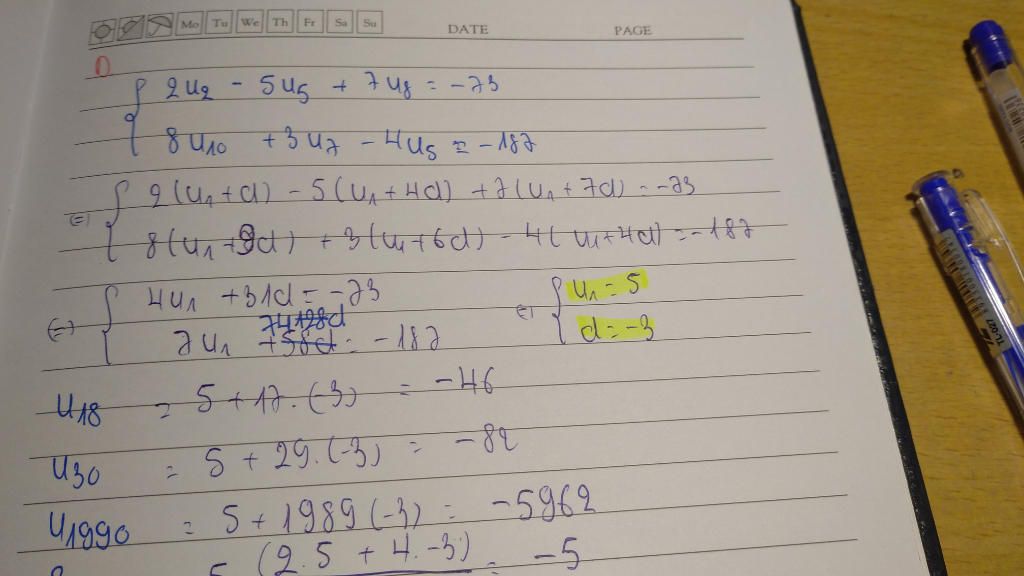 Mo Tu We Th Fr Sa Su DATE PAGE
1)
2u₂ - 5u₅ + 7u₈ = -73
8u₁₀ + 3u₇ - 4u₅ = -187
(=) 2(u₁+d) - 5(u₁+4d) + 7(u₁+7d) = -73
8(u₁+9d) + 3(u₁+6d) - 4(u₁+4d) = -187
(=) 4u₁ + 31d = -73 (=) u₁ = 5
7u₁ = -187 d = -3
u₁₈ = 5 + 17.(-3) = -46
u₃₀ = 5 + 29.(-3) = -82
u₁₉₉₀ = 5 + 1989(-3) = -5962
5 (2.5 + 4.-3) = -5
TL-027